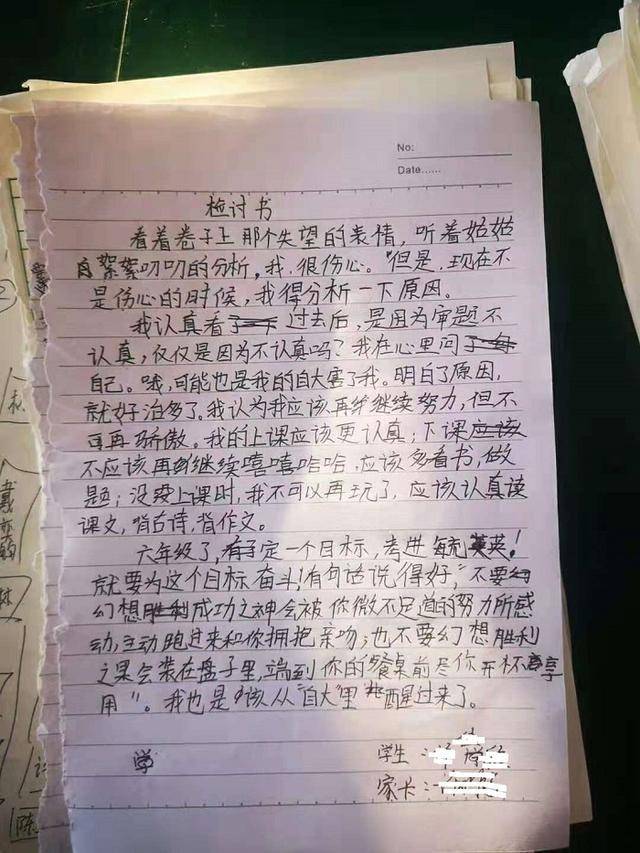 No:
Date......
检讨书
看着卷子上那个失望的表情，听着姑姑
絮絮叨叨的分析，我很伤心。"但是，现在不
是伤心的时候，我得分析一下原因。
我认真看过去后，是因为审题不
认真，仅仅是因为不认真吗？我在心里问
自己。哦，可能也是我的自大害了我。明白了原因，
就好治多了。我认为我应该再继续努力，但不
可再骄傲。我的上课应该更认真；下课
不应该再继续嘻嘻哈哈，应该多看书，做
题；没要上课时，我不可以再玩了，应该认真读
课文，背古诗，背作文。
六年级了，定一个目标，考进英！
就要为这个目标奋斗！有句话说得好，"不要
幻想成功之神会被你微不足道的努力所感
动，主动跑过来和你拥抱亲吻；也不要幻想胜利
之果会装在盘子里，端到你的餐桌前尽你开怀享
用"。我也是该从"自大"里醒过来了。
学生：
家长：
陈